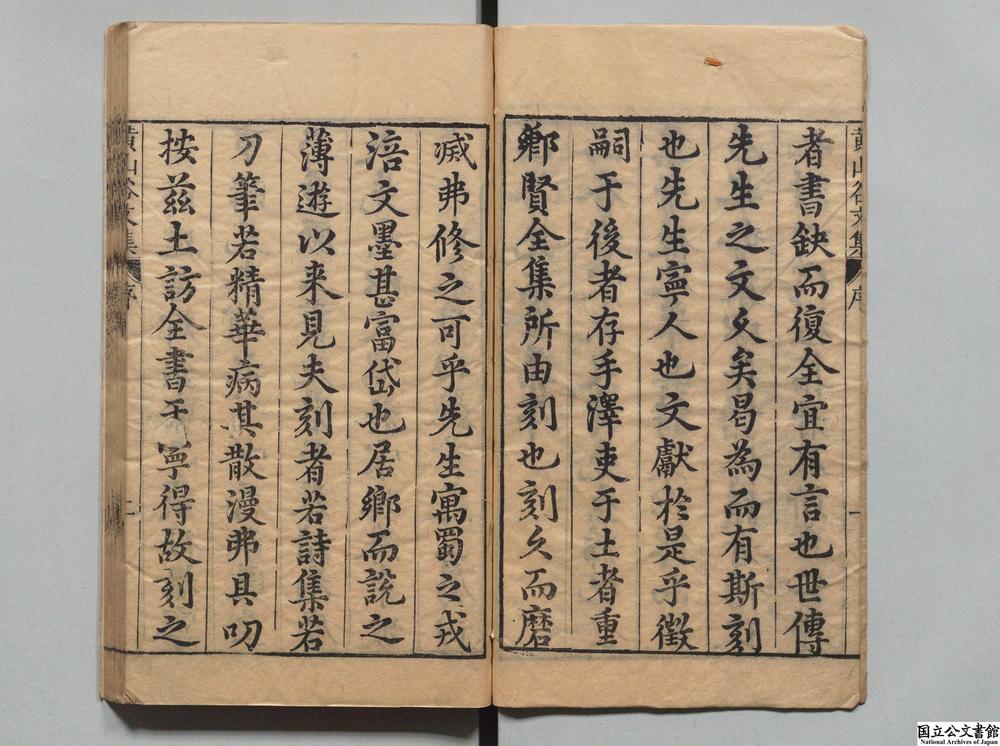 黄山谷文集
序
一
者書缺而復全宜有言也世傳
先生之文久矣曷為而有斯刻
也先生寧人也文獻於是乎徵
嗣于後者存手澤吏于土者重
鄉賢全集所由刻也刻久而磨
滅弗修之可乎先生寓蜀之戎
涪文墨甚富岱也居鄉而說之
薄遊以来見夫刻者若詩集若
刀筆若精華病其散漫弗具叨
按茲土訪全書于寧得故刻之
黄山谷文集
序
二
国立公文書館
National Archives of Japan